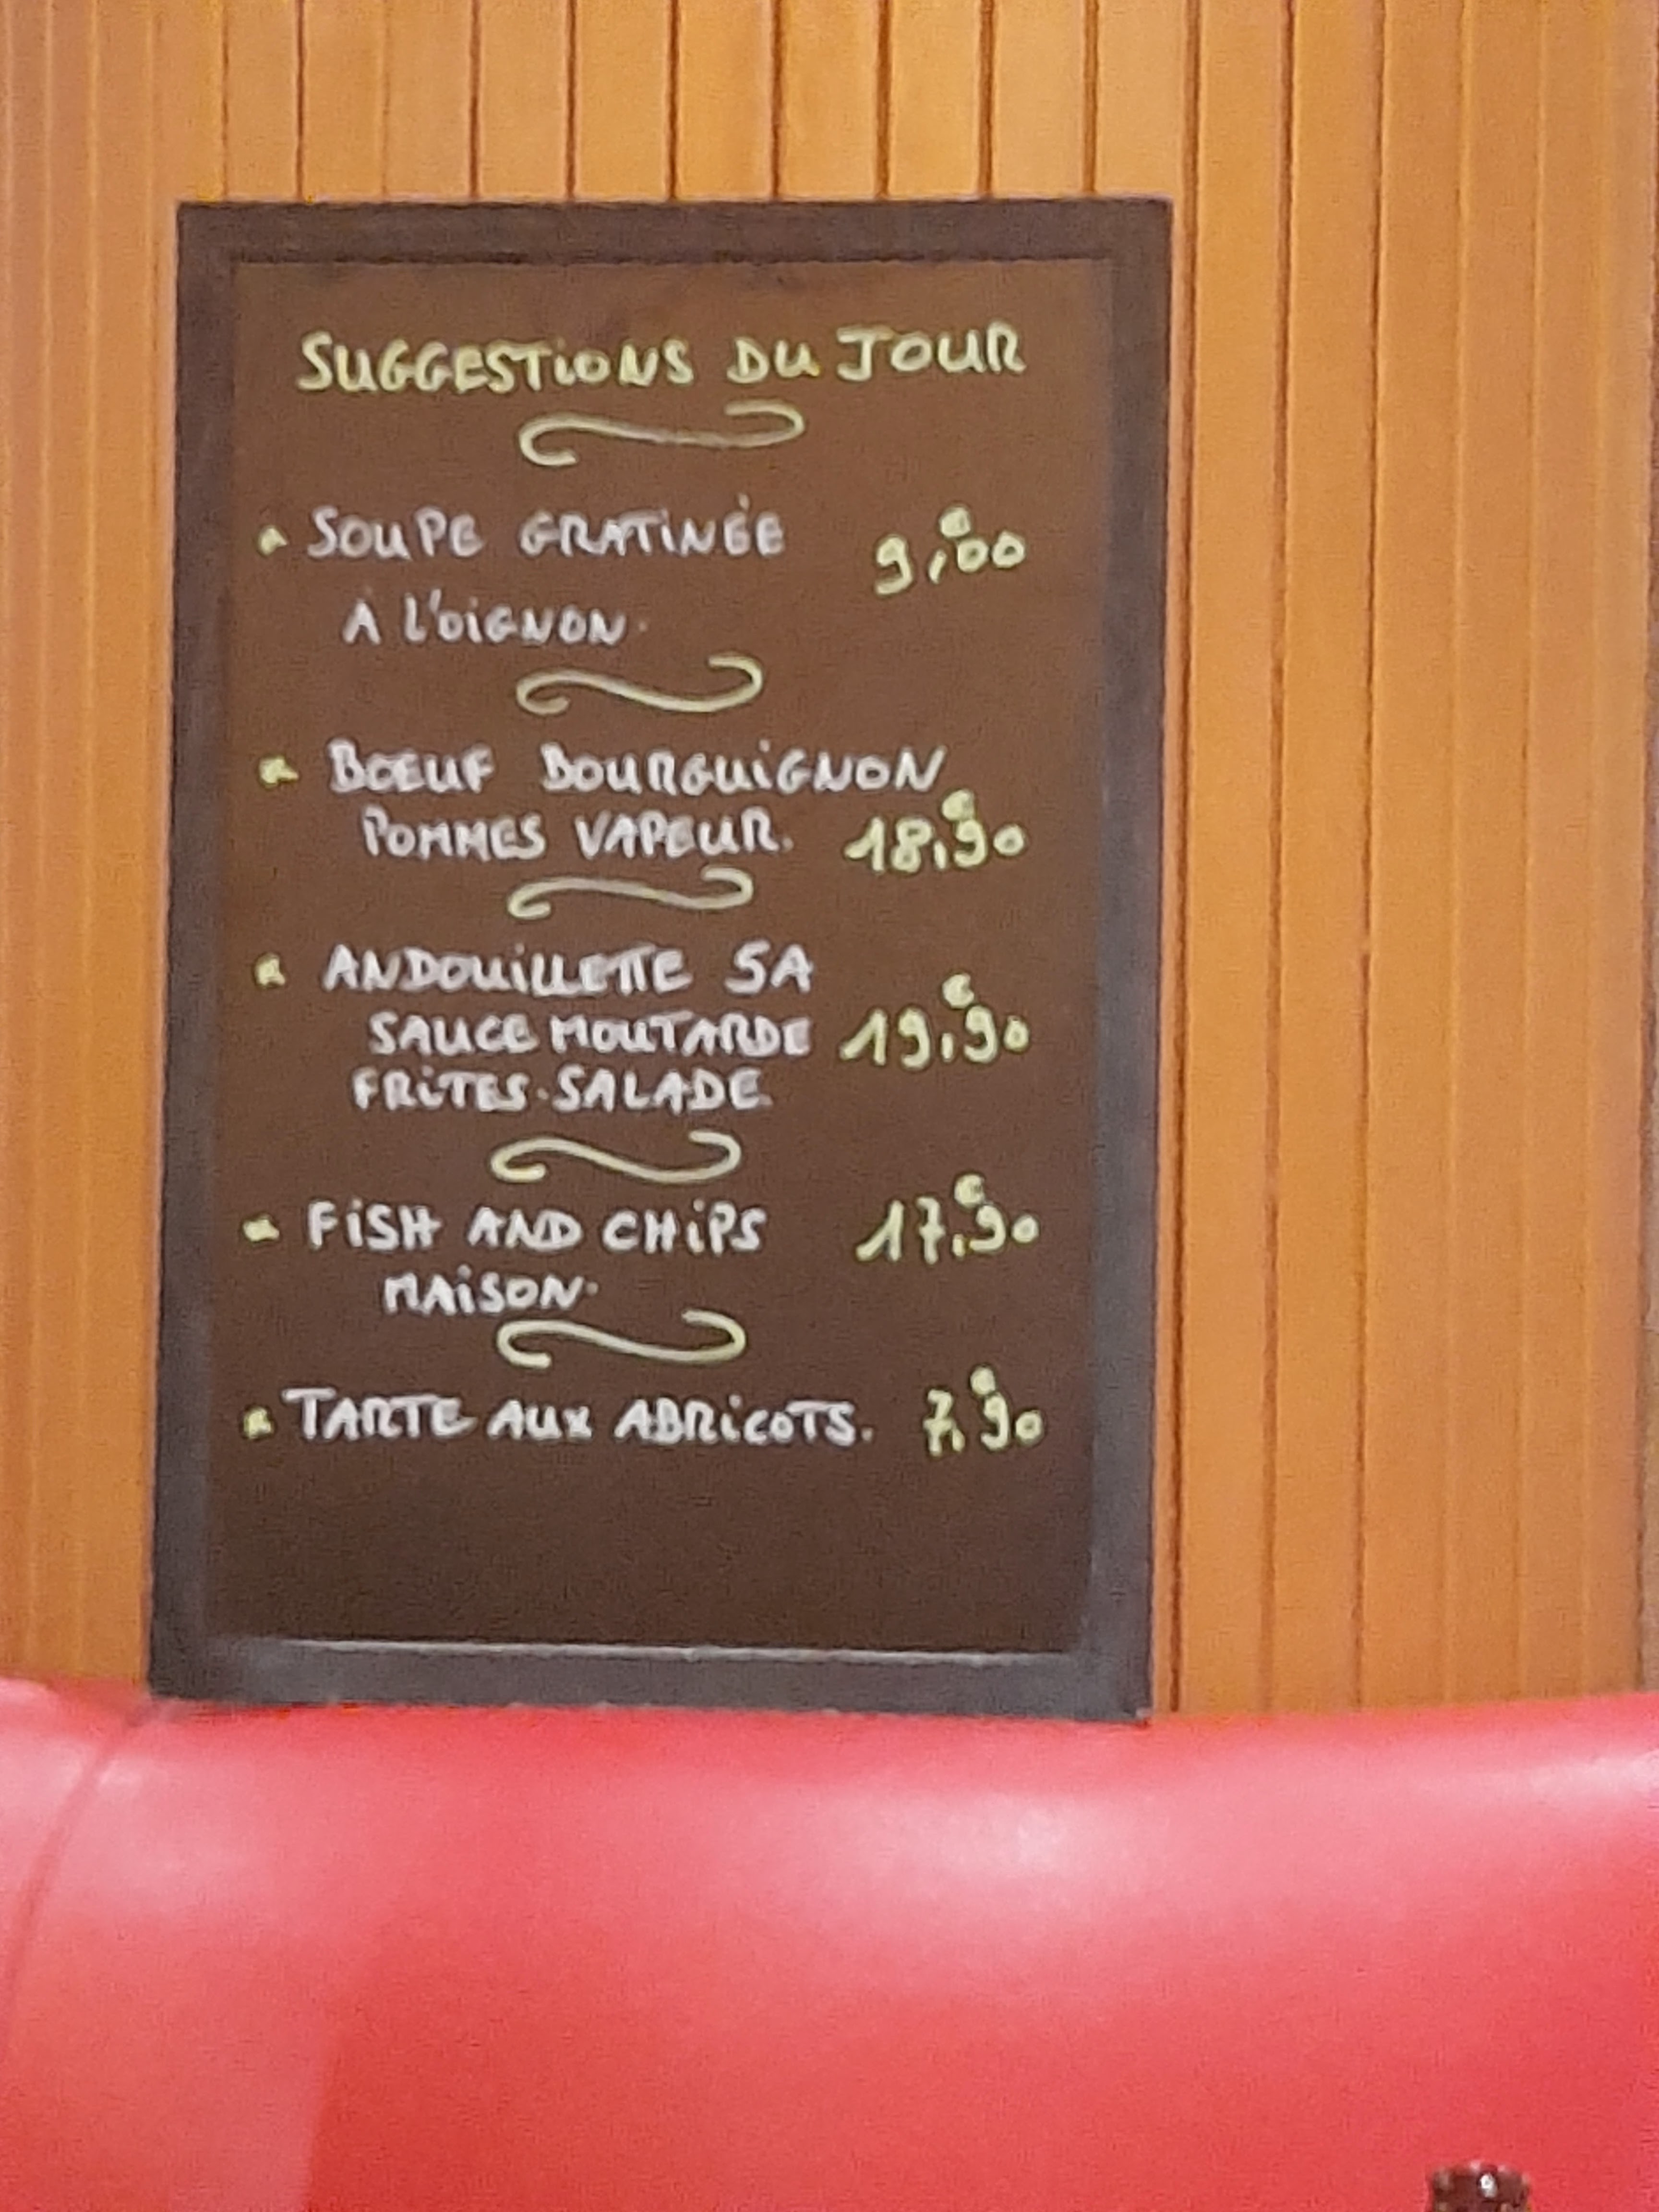 SUGGESTIONS DU JOUR
SOUPE GRATINÉE 9,€00
A L'OIGNON.
BOEUF BOURGUIGNON
POMMES VAPEUR. 18,€90
ANDOUILLETTE 5A
SAUCE MOUTARDE 19,€90
FRITES. SALADE.
FISH AND CHIPS 17,€90
MAISON.
TARTE AUX ABRICOTS. 7,€90